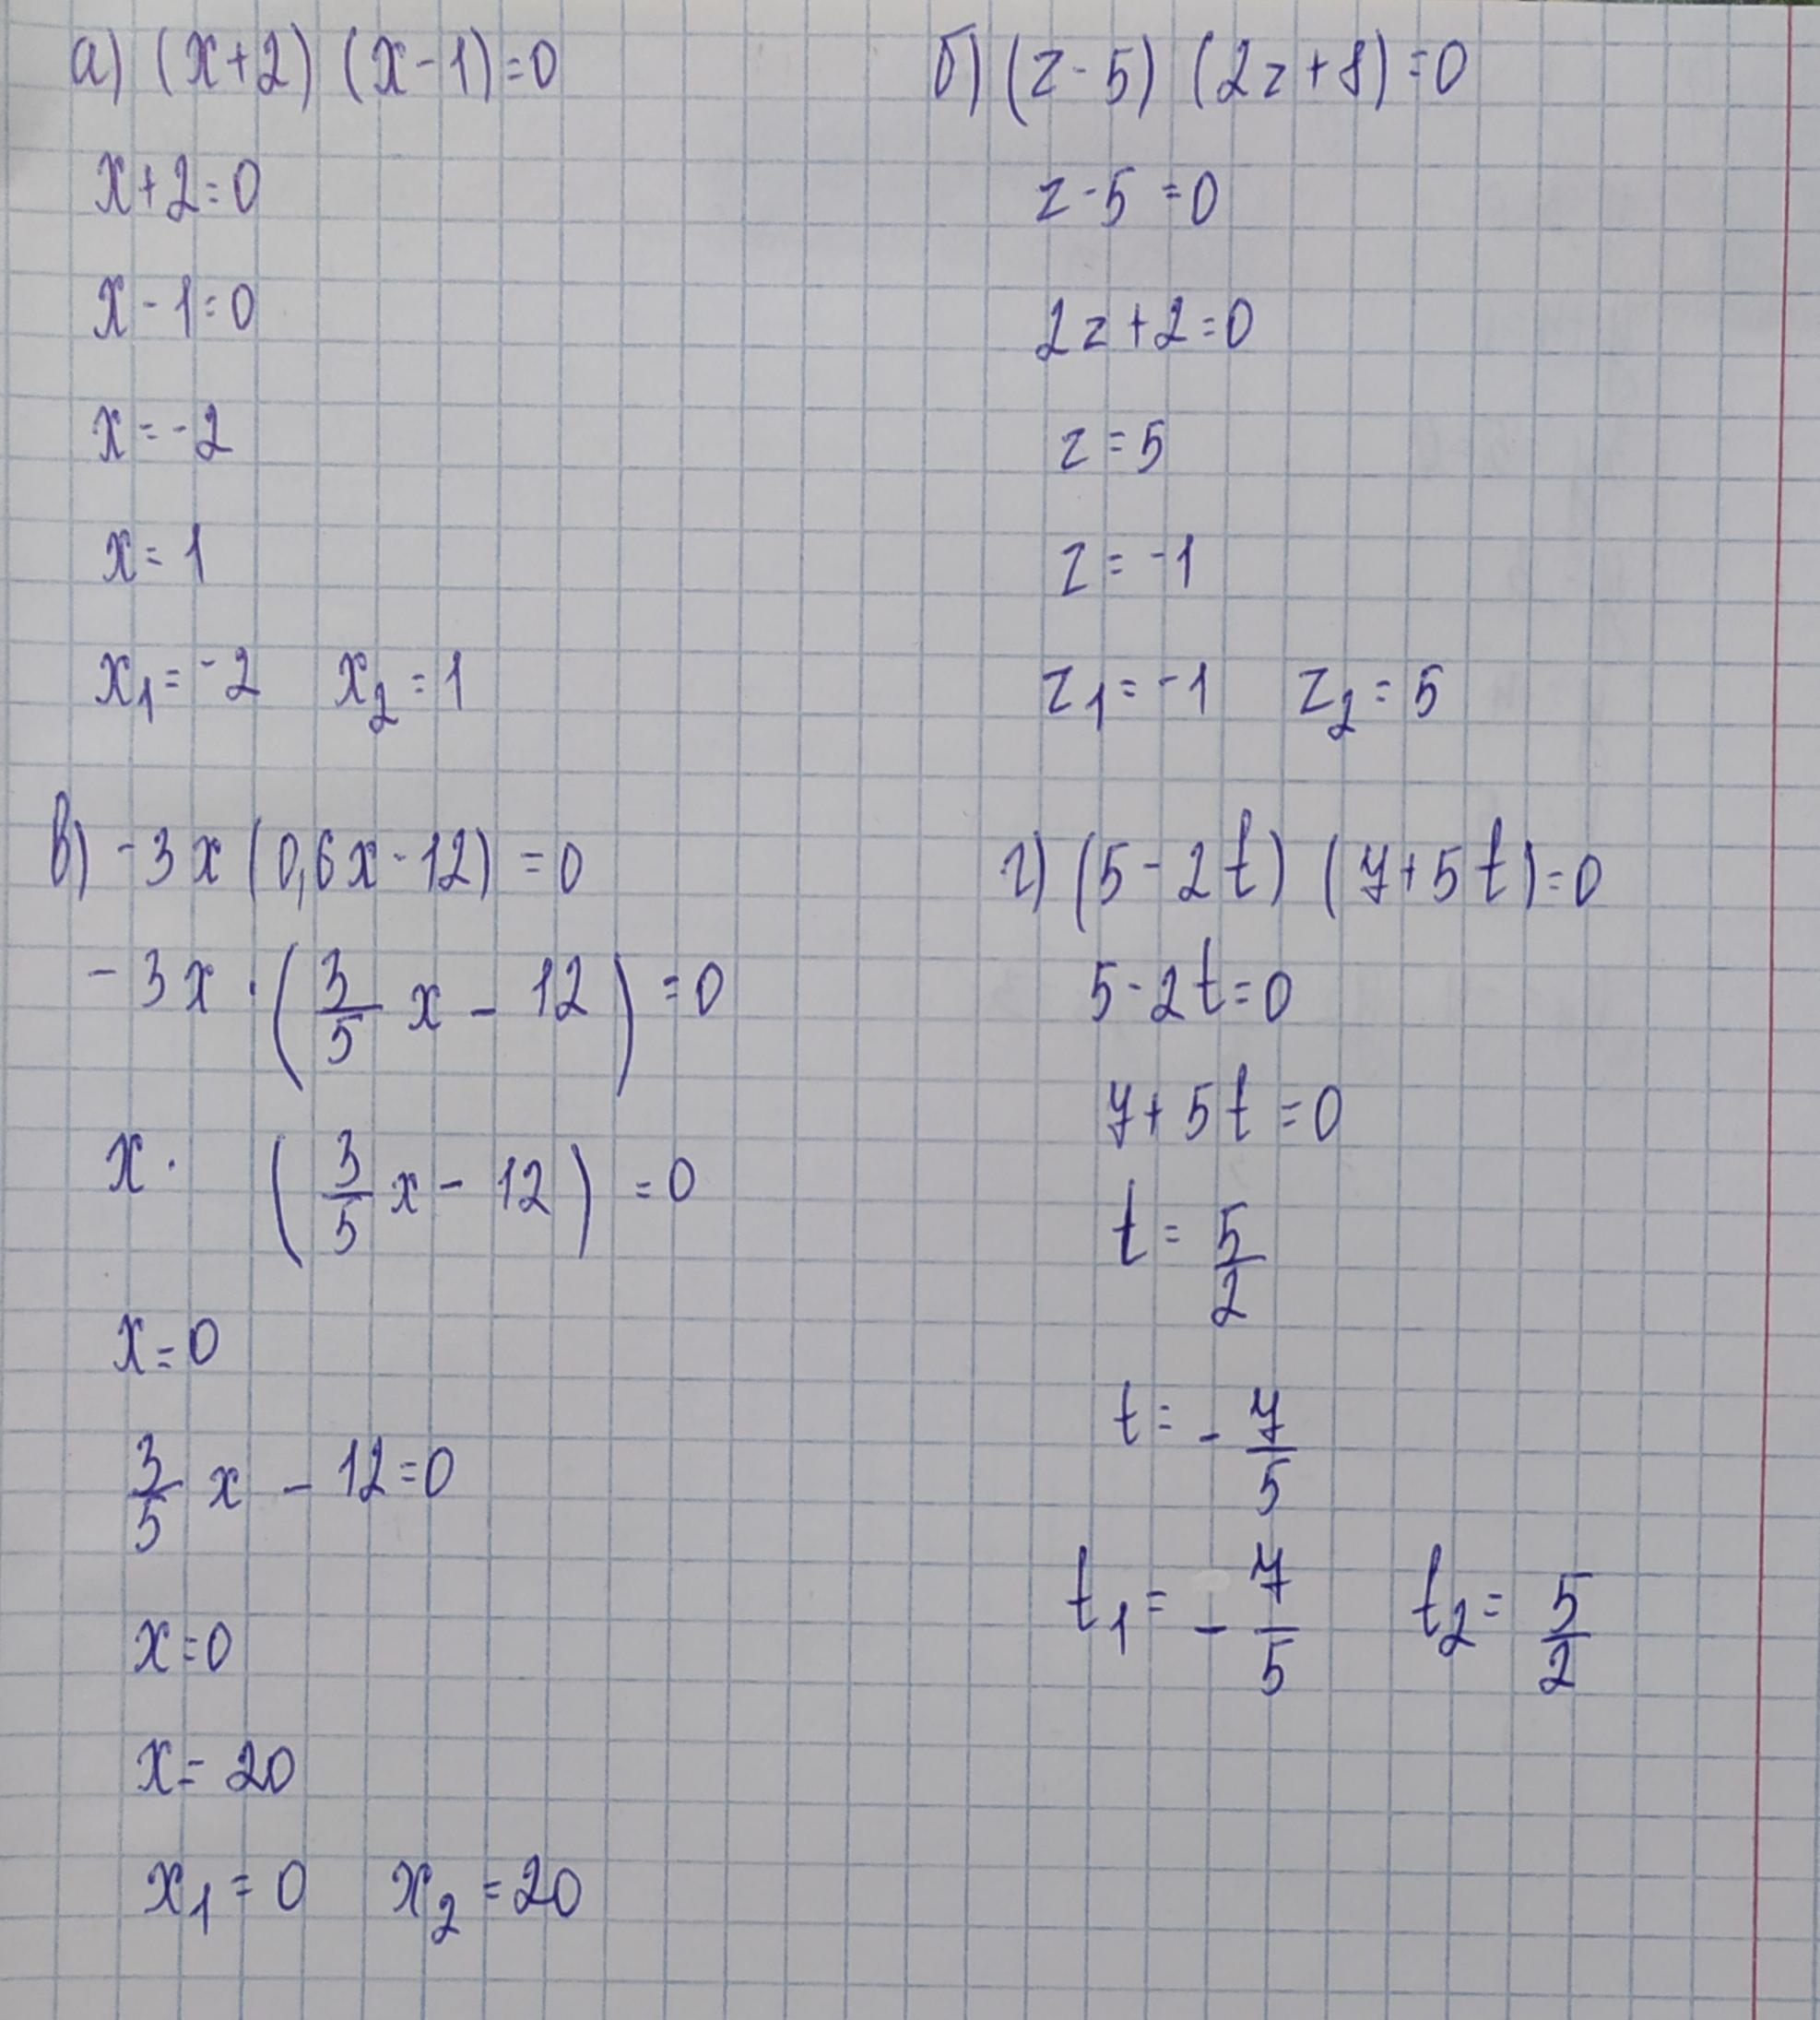 а) (x+2) (x-1)=0
x+2=0
x-1=0
x=-2
x=1
x₁=-2 x₂=1
б) (z-5) (2z+8)=0
z-5=0
2z+2=0
z=5
z=-1
z₁=-1 z₂=5
в) -3x(0,6x-12)=0
-3x·(3/5 x-12)=0
x·(3/5 x-12)=0
x=0
3/5 x-12=0
x=0
x=20
x₁=0 x₂=20
г) (5-2t) (7+5t)=0
5-2t=0
7+5t=0
t=5/2
t=-7/5
t₁=-7/5 t₂=5/2